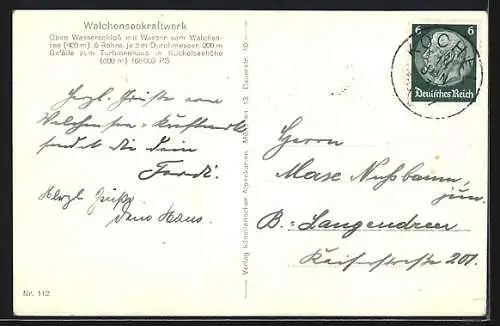 Walchenseekraftwerk
Oben Wasserschloß mit Wasser vom Walchen-
see (800 m) 6 Rohre, je 2 m Durchmesser, 200 m
Gefälle zum Turbinenhaus in Kochelseehöhe
(600 m) 168000 PS
KOCHEL
6 6
Deutsches Reich
Herzl. Grüße vom
Walchensee-Kraftwerk
sendet Dir dein
Ferdi.
Herzl. Grüße
dein Hans.
Verlag künstlerischer Alpenkarten, München 13, Bauerstr. 10
Herrn
Max Nußbaum,
jun.
B.-Langendreer
Kaiserstraße 201.
Nr. 112